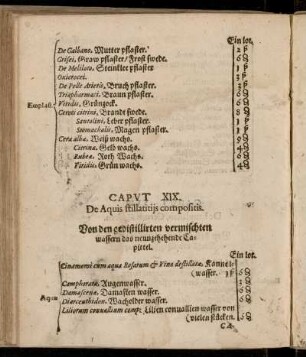 Ein lot.
De Galbano. Mutter pflaster.
Grisei, Graw pflaster/ Frost swede.
De Meliloto. Steinklee pflaster
Oxicrocei.
De Pelle Arietis, Bruch pflaster.
Triapharmaci. Braun pflaster.
Exoplast. Viridis, Grünzock.
Cerati citrini, Brandt swede.
Santalini. Leber pflaster.
Stomachalis. Magen pflaster.
Cera alba. Weiß wachs.
Citrina. Gelb wachs.
Rubra. Roth Wachs.
Viridis. Grün wachs.
CAPVT XIX.
De Aquis stillatitijs compositis.
Von den gedistillirten vermischten
wassern das neunzehende Ca-
pittel.
Ein lot.
Cinamomi cum aqua Rosarum & Vino destillata. Kannel-
(wasser.
Camphorata. Augenwasser.
Aquæ Damascena. Damasten wasser.
Diarcenthidos. Wacholder wasser.
Liliorum conuallium comp: Lilien conuallien wasser von
(vielen stücken.